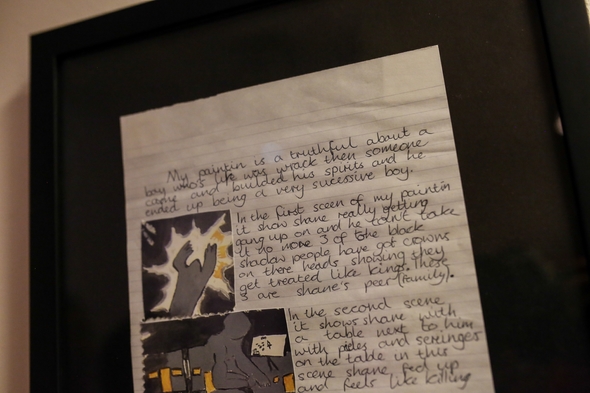 My paintin is a truthful about a
boy who's life was wrack then someone
came and builded his spirits and he
ended up being a very sucessive boy.
In the first sceen of my paintin
it show shane really getting
gang up on and he can't take
it no more 3 of the black
shadow people have got crowns
on there heads showing they
get treated like kings. These
3 are shane's peer (family).
In the second scene
it shows shane with
a table next to him
with pides and seringes
on the table in this
scene shane fed up
and feels like killing